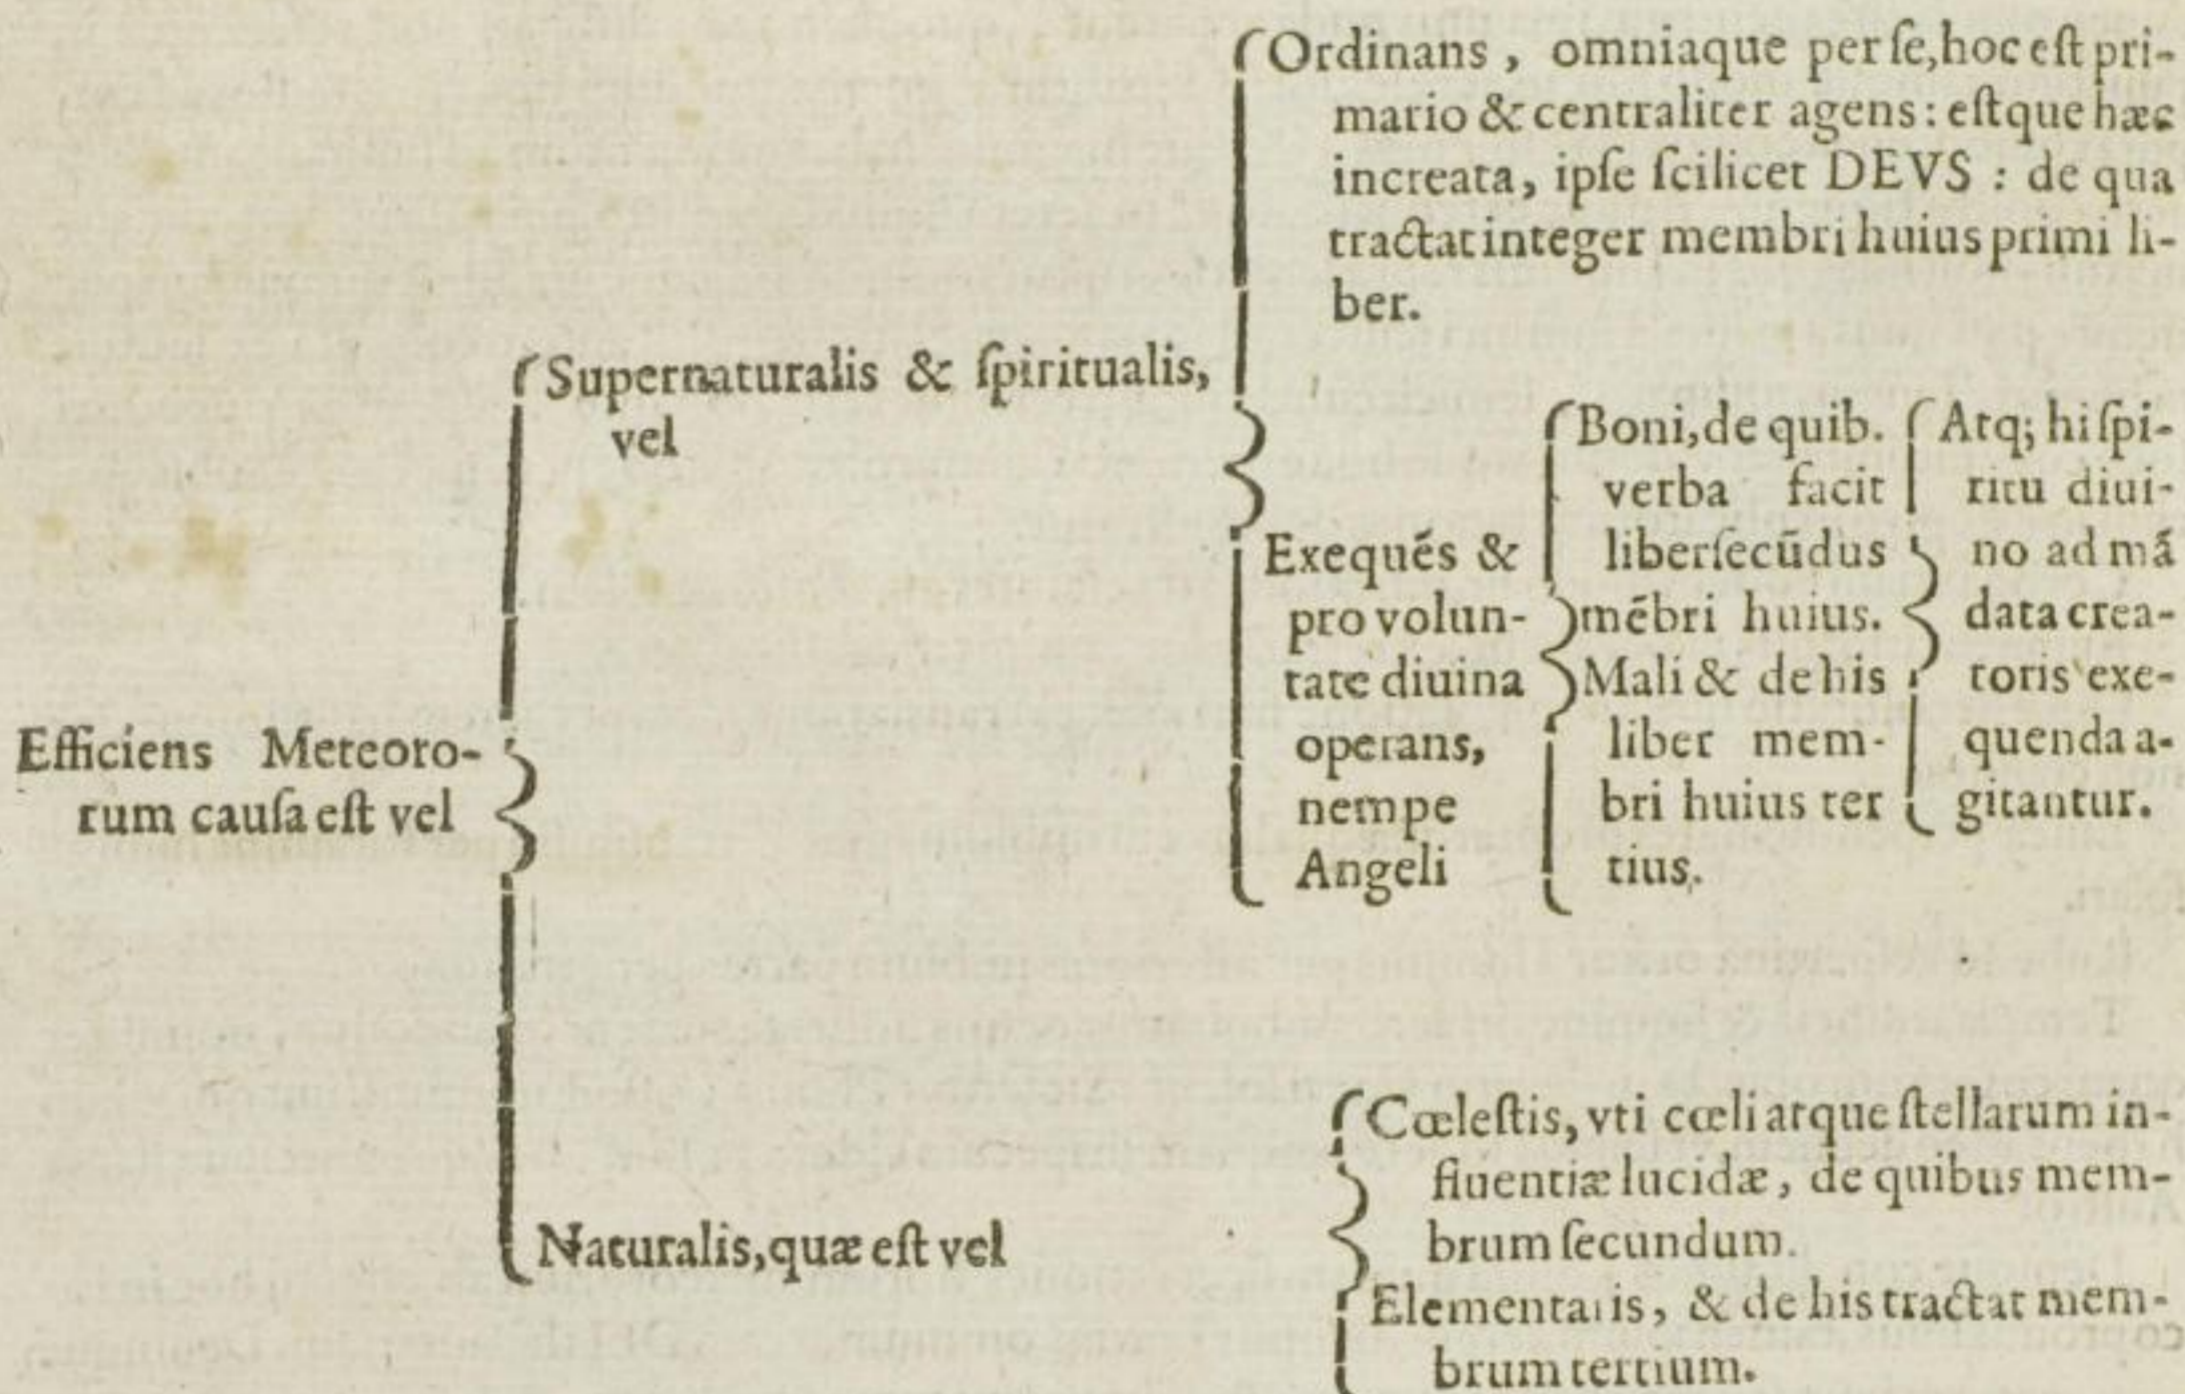 Efficiens Meteoro-
rum cauſa eſt vel
Supernaturalis & ſpiritualis,
vel
Ordinans, omniaque per ſe, hoc eſt pri-
mario & centraliter agens: eſtque hæc
increata, ipſe ſcilicet DEVS: de qua
tractat integer membri huius primi li-
ber.
Exequẽs &
pro volun-
tate diuina
operans,
nempe
Angeli
Boni, de quib.
verba facit
liber ſecũdus
mẽbri huius.
Mali & de his
liber mem-
bri huius ter
tius.
Atq; hi ſpi-
ritu diui-
no ad mã
data crea-
toris exe-
quenda a-
gitantur.
Naturalis, quæ eſt vel
Cœleſtis, vti cœli atque ſtellarum in-
fluentiæ lucidæ, de quibus mem-
brum ſecundum.
Elementaris, & de his tractat mem-
brum tertium.